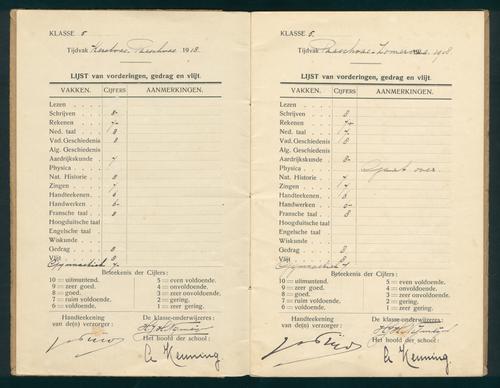 KLASSE 5
Tijdvak Kerstvac.-Paaschvac. 1918.
LIJST van vorderingen, gedrag en vlijt.
VAKKEN. CIJFERS AANMERKINGEN.
Lezen
Schrijven 8-
Rekenen 7-
Ned. taal 8
Vad. Geschiedenis 8
Alg. Geschiedenis
Aardrijkskunde 7
Physica
Nat. Historie 8
Zingen 7
Handteekenen 6
Handwerken 6-
Fransche taal 8
Hoogduitsche taal
Engelsche taal
Wiskunde
Gedrag 8
Vlijt 8
Gymnastiek 7
Beteekenis der Cijfers:
10 = uitmuntend. 5 = even voldoende.
9 = zeer goed. 4 = onvoldoende.
8 = goed. 3 = zeer onvoldoende.
7 = ruim voldoende. 2 = gering.
6 = voldoende. 1 = zeer gering.
Handteekening De klasse-onderwijzeres:
van de(n) verzorger:
Het hoofd der school:
C. Kenning
KLASSE 5.
Tijdvak Paaschvac.-Zomervac. 1918
LIJST van vorderingen, gedrag en vlijt.
VAKKEN. CIJFERS AANMERKINGEN.
Lezen
Schrijven 8
Rekenen 7+
Ned. taal 7
Vad. Geschiedenis 8
Alg. Geschiedenis
Aardrijkskunde 8-
Physica Gaat over.
Nat. Historie 7
Zingen 7
Handteekenen 7
Handwerken 8-
Fransche taal 8
Hoogduitsche taal
Engelsche taal
Wiskunde
Gedrag 8
Vlijt 8
Gymnastiek 7
Beteekenis der Cijfers:
10 = uitmuntend. 5 = even voldoende.
9 = zeer goed. 4 = onvoldoende.
8 = goed. 3 = zeer onvoldoende.
7 = ruim voldoende. 2 = gering.
6 = voldoende. 1 = zeer gering.
Handteekening De klasse-onderwijzeres:
van de(n) verzorger:
Het hoofd der school:
C. Kenning.